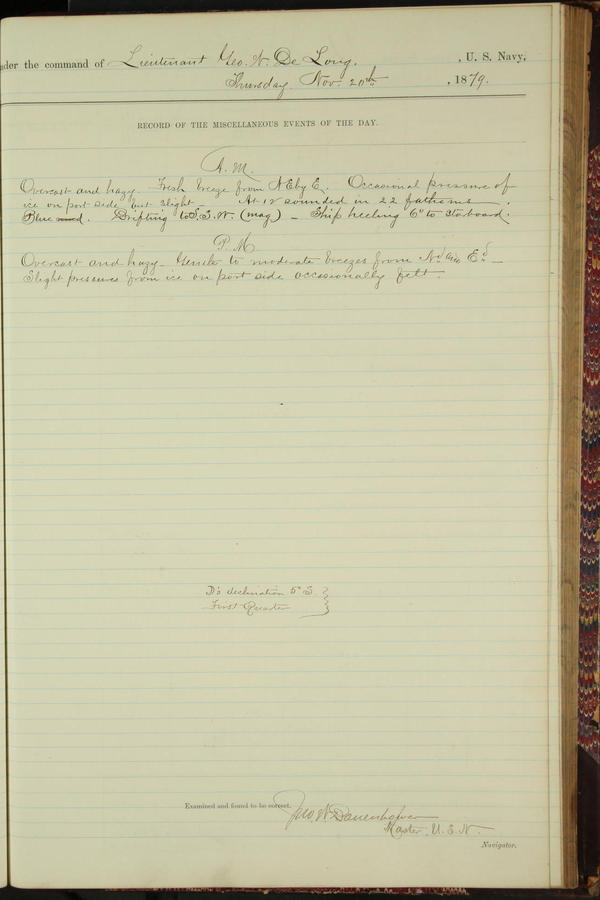 nder the command of Lieutenant Geo. W. De Long, , U. S. Navy,
Thursday, Nov. 20th , 1879.
RECORD OF THE MISCELLANEOUS EVENTS OF THE DAY.
A. M.
Overcast and hazy. Fresh breeze from NEbyE. Occasional pressure of
ice on port side but slight. At 12 sounded in 22 fathoms.
Blue mud. Drifting to S.S.W. (mag) — Ship heeling 6° to starboard.
P. M.
Overcast and hazy— Gentle to moderate breezes from Nd and Ed—
Slight pressures from ice on port side occasionally felt.
D's declination 5° S.
First Quarter
Examined and found to be correct.
Jno. W. Danenhower
Master, U. S. N.
Navigator.